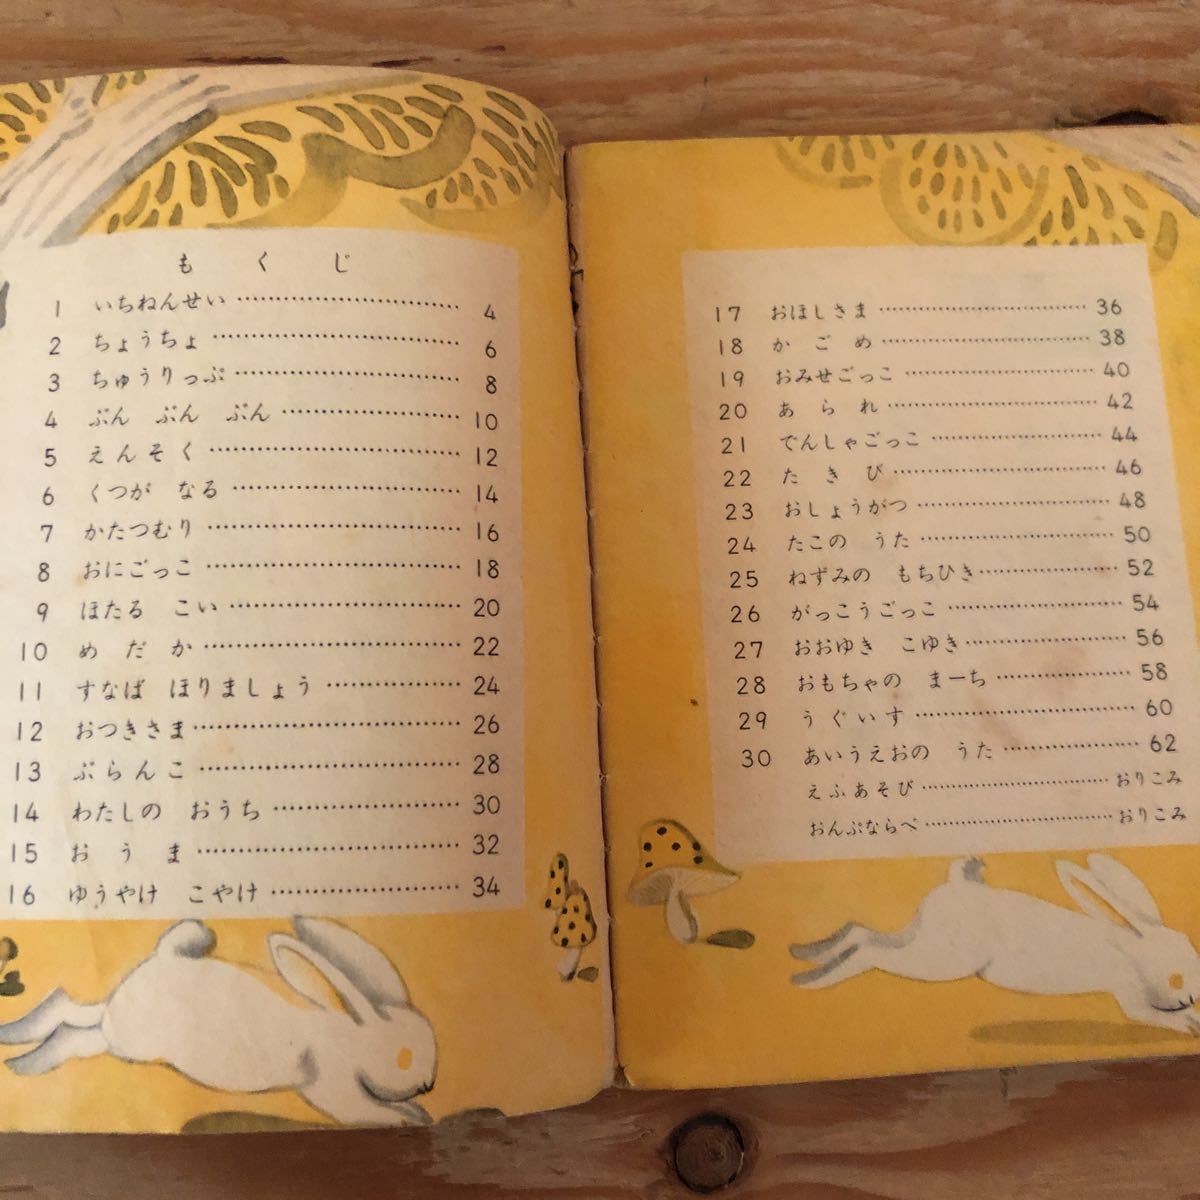 もくじ
1 いちねんせい 4
2 ちょうちょ 6
3 ちゅうりっぷ 8
4 ぶん ぶん ぶん 10
5 えんそく 12
6 くつが なる 14
7 かたつむり 16
8 おにごっこ 18
9 ほたる こい 20
10 めだか 22
11 すなば ほりましょう 24
12 おつきさま 26
13 ぶらんこ 28
14 わたしの おうち 30
15 おうま 32
16 ゆうやけ こやけ 34
17 おほしさま 36
18 かごめ 38
19 おみせごっこ 40
20 あられ 42
21 でんしゃごっこ 44
22 たきび 46
23 おしょうがつ 48
24 たこの うた 50
25 ねずみの もちひき 52
26 がっこうごっこ 54
27 おおゆき こゆき 56
28 おもちゃの まーち 58
29 うぐいす 60
30 あいうえおの うた 62
えふあそび おりこみ
おんぷならべ おりこみ